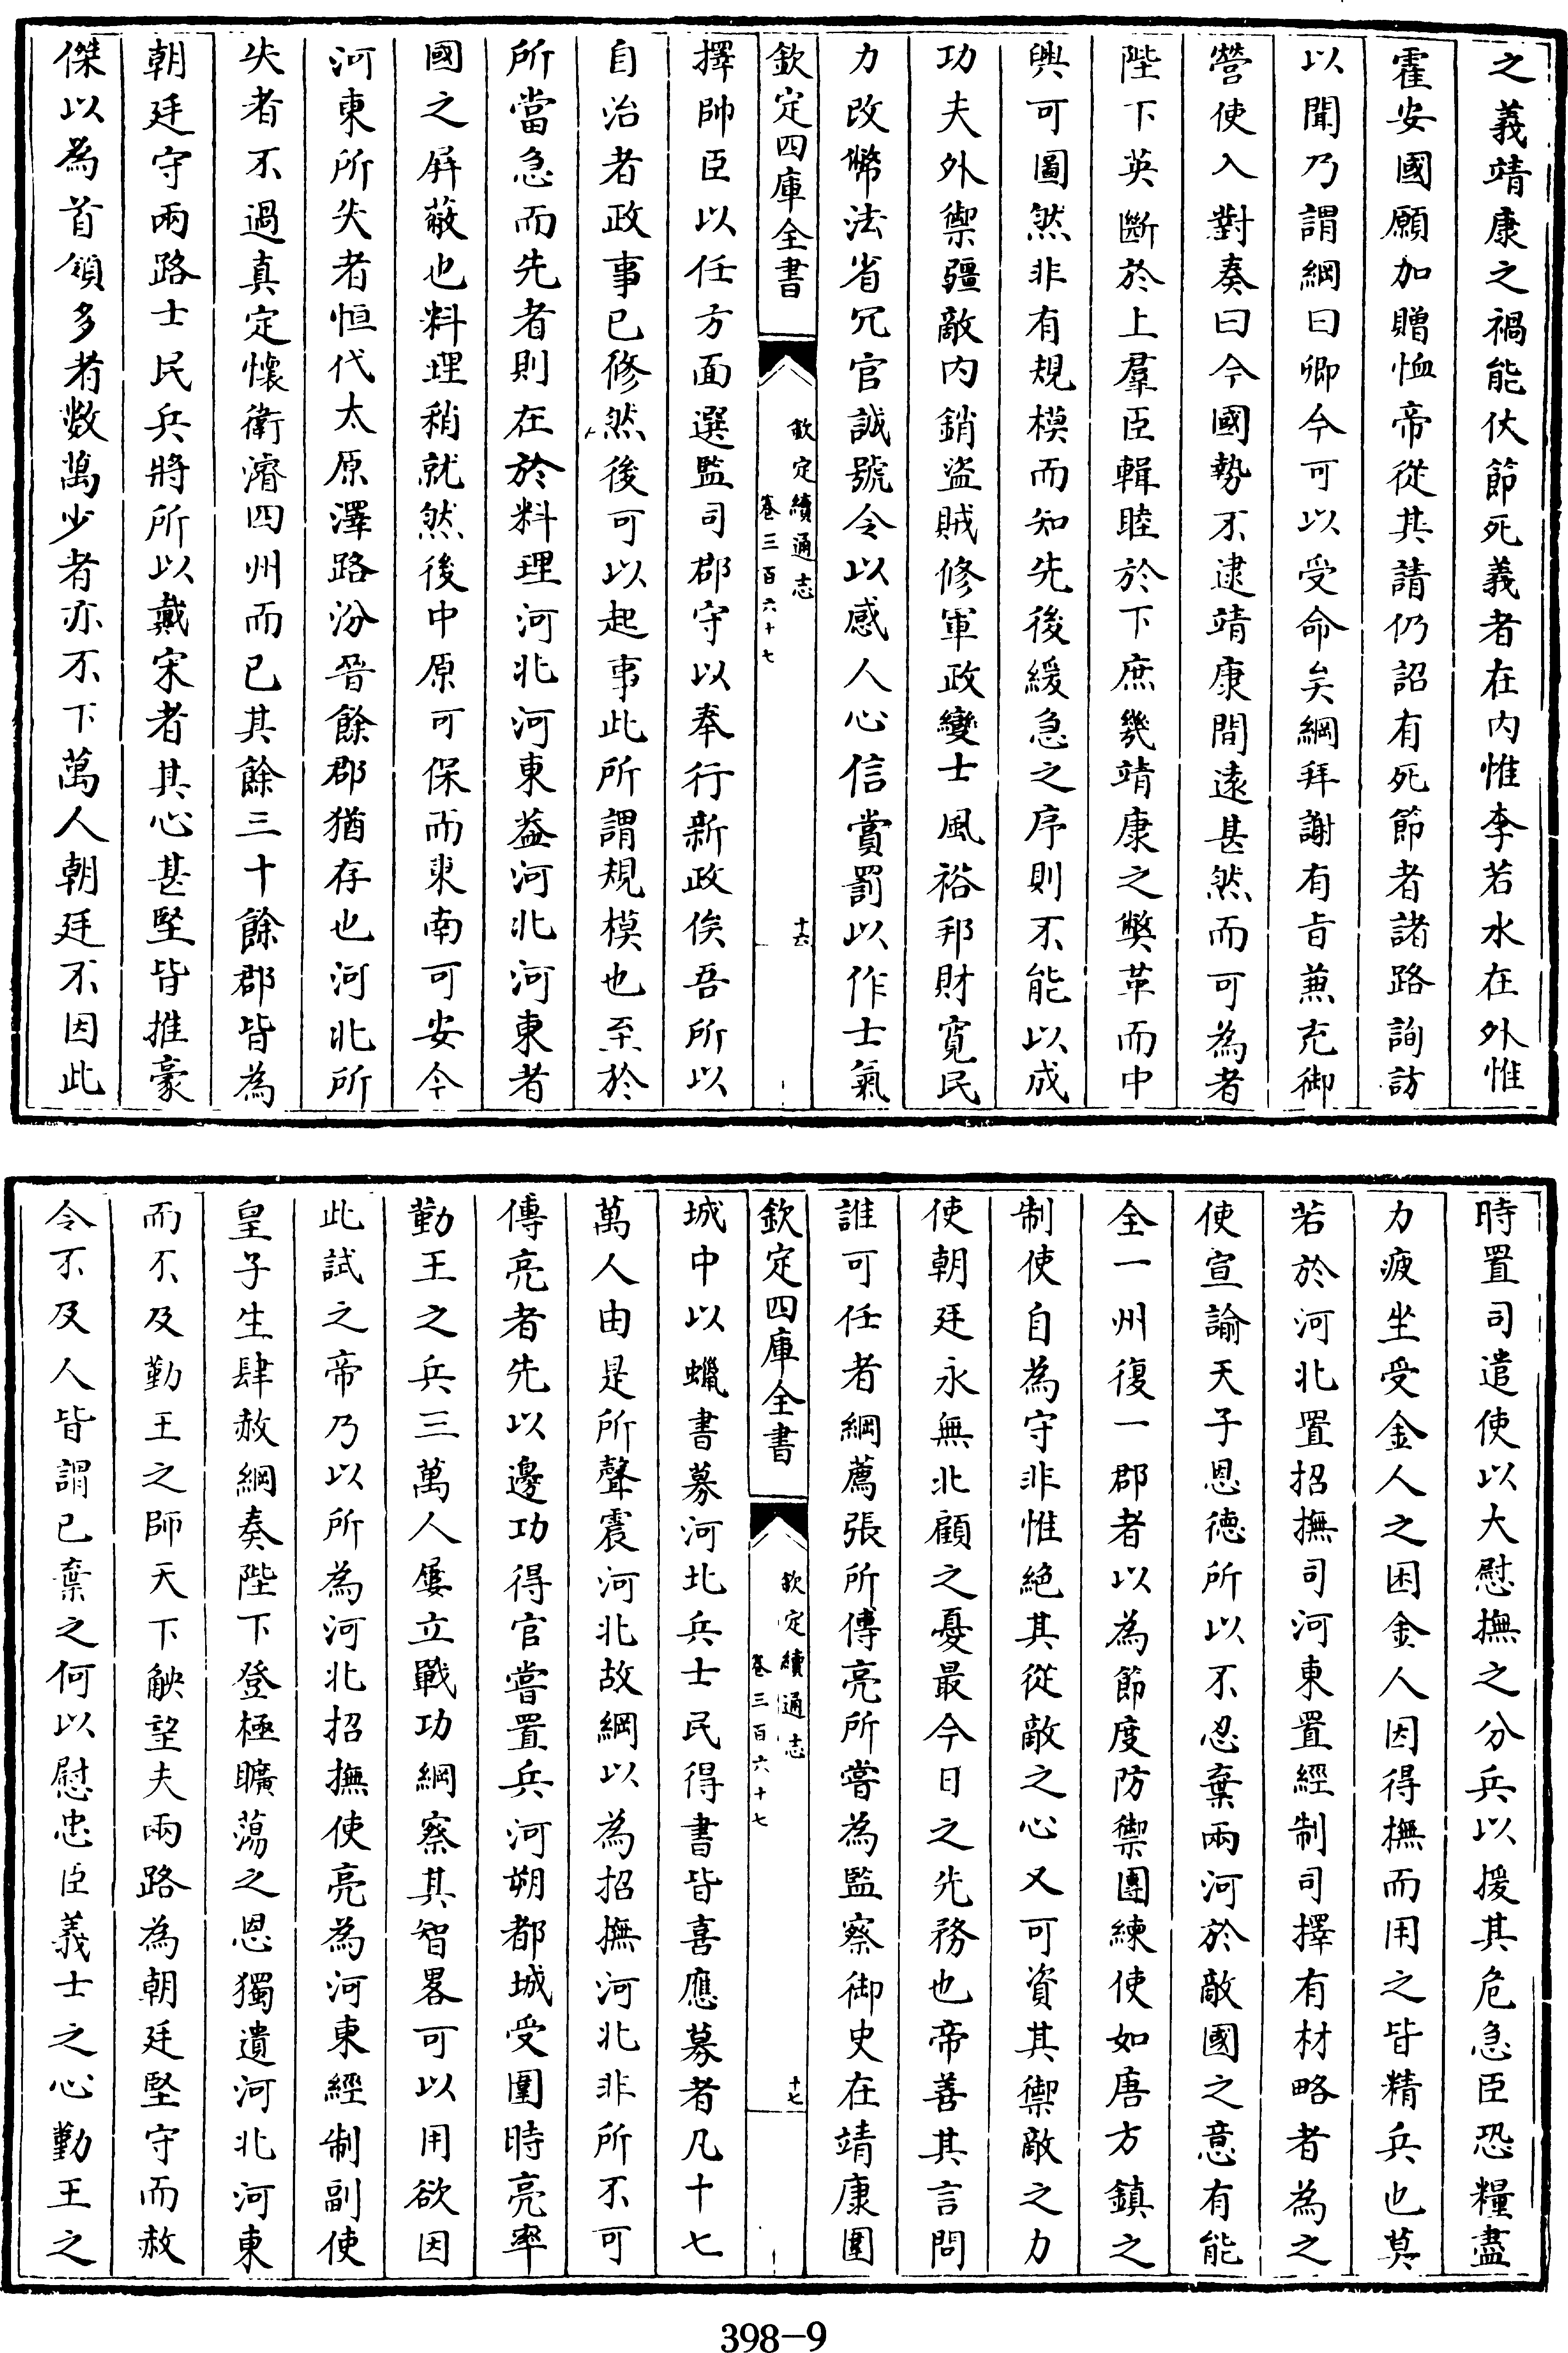 之義靖康之禍能仗節死義者在内惟李若水在外惟
霍安國願加贈恤帝從其請仍詔有死節者諸路詢訪
以聞乃謂綱曰卿今可以受命矣綱拜謝有旨兼充御
營使入對奏曰今國勢不逮靖康間遠甚然而可為者
陛下英斷於上羣臣輯睦於下庶幾靖康之弊革而中
興可圖然非有規模而知先後緩急之序則不能以成
功夫外禦疆敵内銷盜賊修軍政變士風裕邦財寛民
力改幣法省冗官誠號令以感人心信賞罰以作士氣
欽定四庫全書
欽定續通志
卷三百六十七
十六
擇帥臣以任方面選監司郡守以奉行新政俟吾所以
自治者政事已修然後可以起事此所謂規模也至於
所當急而先者則在於料理河北河東葢河北河東者
國之屏蔽也料理稍就然後中原可保而東南可安今
河東所失者恒代太原澤路汾晉餘郡猶存也河北所
失者不過真定懷衛濬四州而已其餘三十餘郡皆為
朝廷守兩路士民兵將所以戴宋者其心甚堅皆推豪
傑以為首領多者數萬少者亦不下萬人朝廷不因此
時置司遣使以大慰撫之分兵以援其危急臣恐糧盡
力疲坐受金人之困金人因得撫而用之皆精兵也莫
若於河北置招撫司河東置經制司擇有材略者為之
使宣諭天子恩德所以不忍棄兩河於敵國之意有能
全一州復一郡者以為節度防禦團練使如唐方鎮之
制使自為守非惟絶其從敵之心又可資其禦敵之力
使朝廷永無北顧之憂最今日之先務也帝善其言問
誰可任者綱薦張所傅亮所嘗為監察御史在靖康圍
欽定四庫全書
欽定續通志
卷三百六十七
十七
城中以蠟書募河北兵士民得書皆喜應募者凡十七
萬人由是所聲震河北故綱以為招撫河北非所不可
傅亮者先以邊功得官嘗置兵河朔都城受圍時亮率
勤王之兵三萬人屢立戰功綱察其智畧可以用欲因
此試之帝乃以所為河北招撫使亮為河東經制副使
皇子生肆赦綱奏陛下登極曠蕩之恩獨遺河北河東
而不及勤王之師天下觖望夫兩路為朝廷堅守而赦
令不及人皆謂已棄之何以慰忠臣義士之心勤王之
398-9